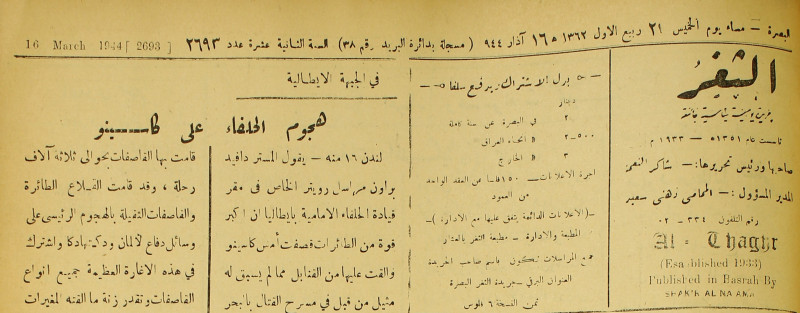 البصرة — مساء يوم الخميس ٢١ ربيع الاول ١٣٦٢ ه ١٦ آذار ٩٤٤ (مسجلة بدائرة البريد رقم ٣٨) السنة الثانية عشرة عدد ٢٦٩٣
16 March 1944 [ 2693 ]
الثغر
جريدة يومية سياسية جامعة
تأسست عام ١٣٥١ ه — ١٩٣٣ م
صاحبها ورئيس تحريرها: — شاكر النعمة
المدير المسؤول: — المحامي زهدي سعيد
رقم التلفون ٣٣٤ — ٠٢
Al - Thaghr
(Established 1933)
Published in Basrah By
SHAKIR AL NAAMA
بدل الاشتراك ويدفع سلفا
دينار
٢ في البصرة عن سنة كاملة
٥٠٠—٢ » انحاء العراق
٣ » الخارج
اجرة الاعلانات — ١٥٠ فلسا من العقد الواحد
من العمود
—(الاعلانات الدائمة يتفق عليها مع الادارة)—
المطبعة والادارة — مطبعة الثغر بالعشار
جميع المراسلات تكون باسم صاحب الجريدة
العنوان البرقي — جريدة الثغر البصرة
ثمن النسخة ٦ فلوس
في الجبهة الايطالية
هجوم الحلفاء على كاسينو
لندن ١٦ منه — يقول المستر دافيد
براون مراسل رويتر الخاص في مقر
قيادة الحلفاء الامامية بايطاليا ان اكبر
قوة من الطائرات قصفت أمس كاسينو
والقت عليها من القنابل مما لم يسبق له
مثيل من قبل في مسرح القتال بالبحر
قامت بها القاصفات بحوالى ثلاثة آلاف
رحلة ، وقد قامت القلاع الطائرة
والقاصفات الثقيلة بالهجوم الرئيسى على
وسائل دفاع لالمان ودكتها دكا واشترك
في هذه الاغارة العظيمة جميع انواع
القاصفات وتقدر زنة ما القته المغيرات